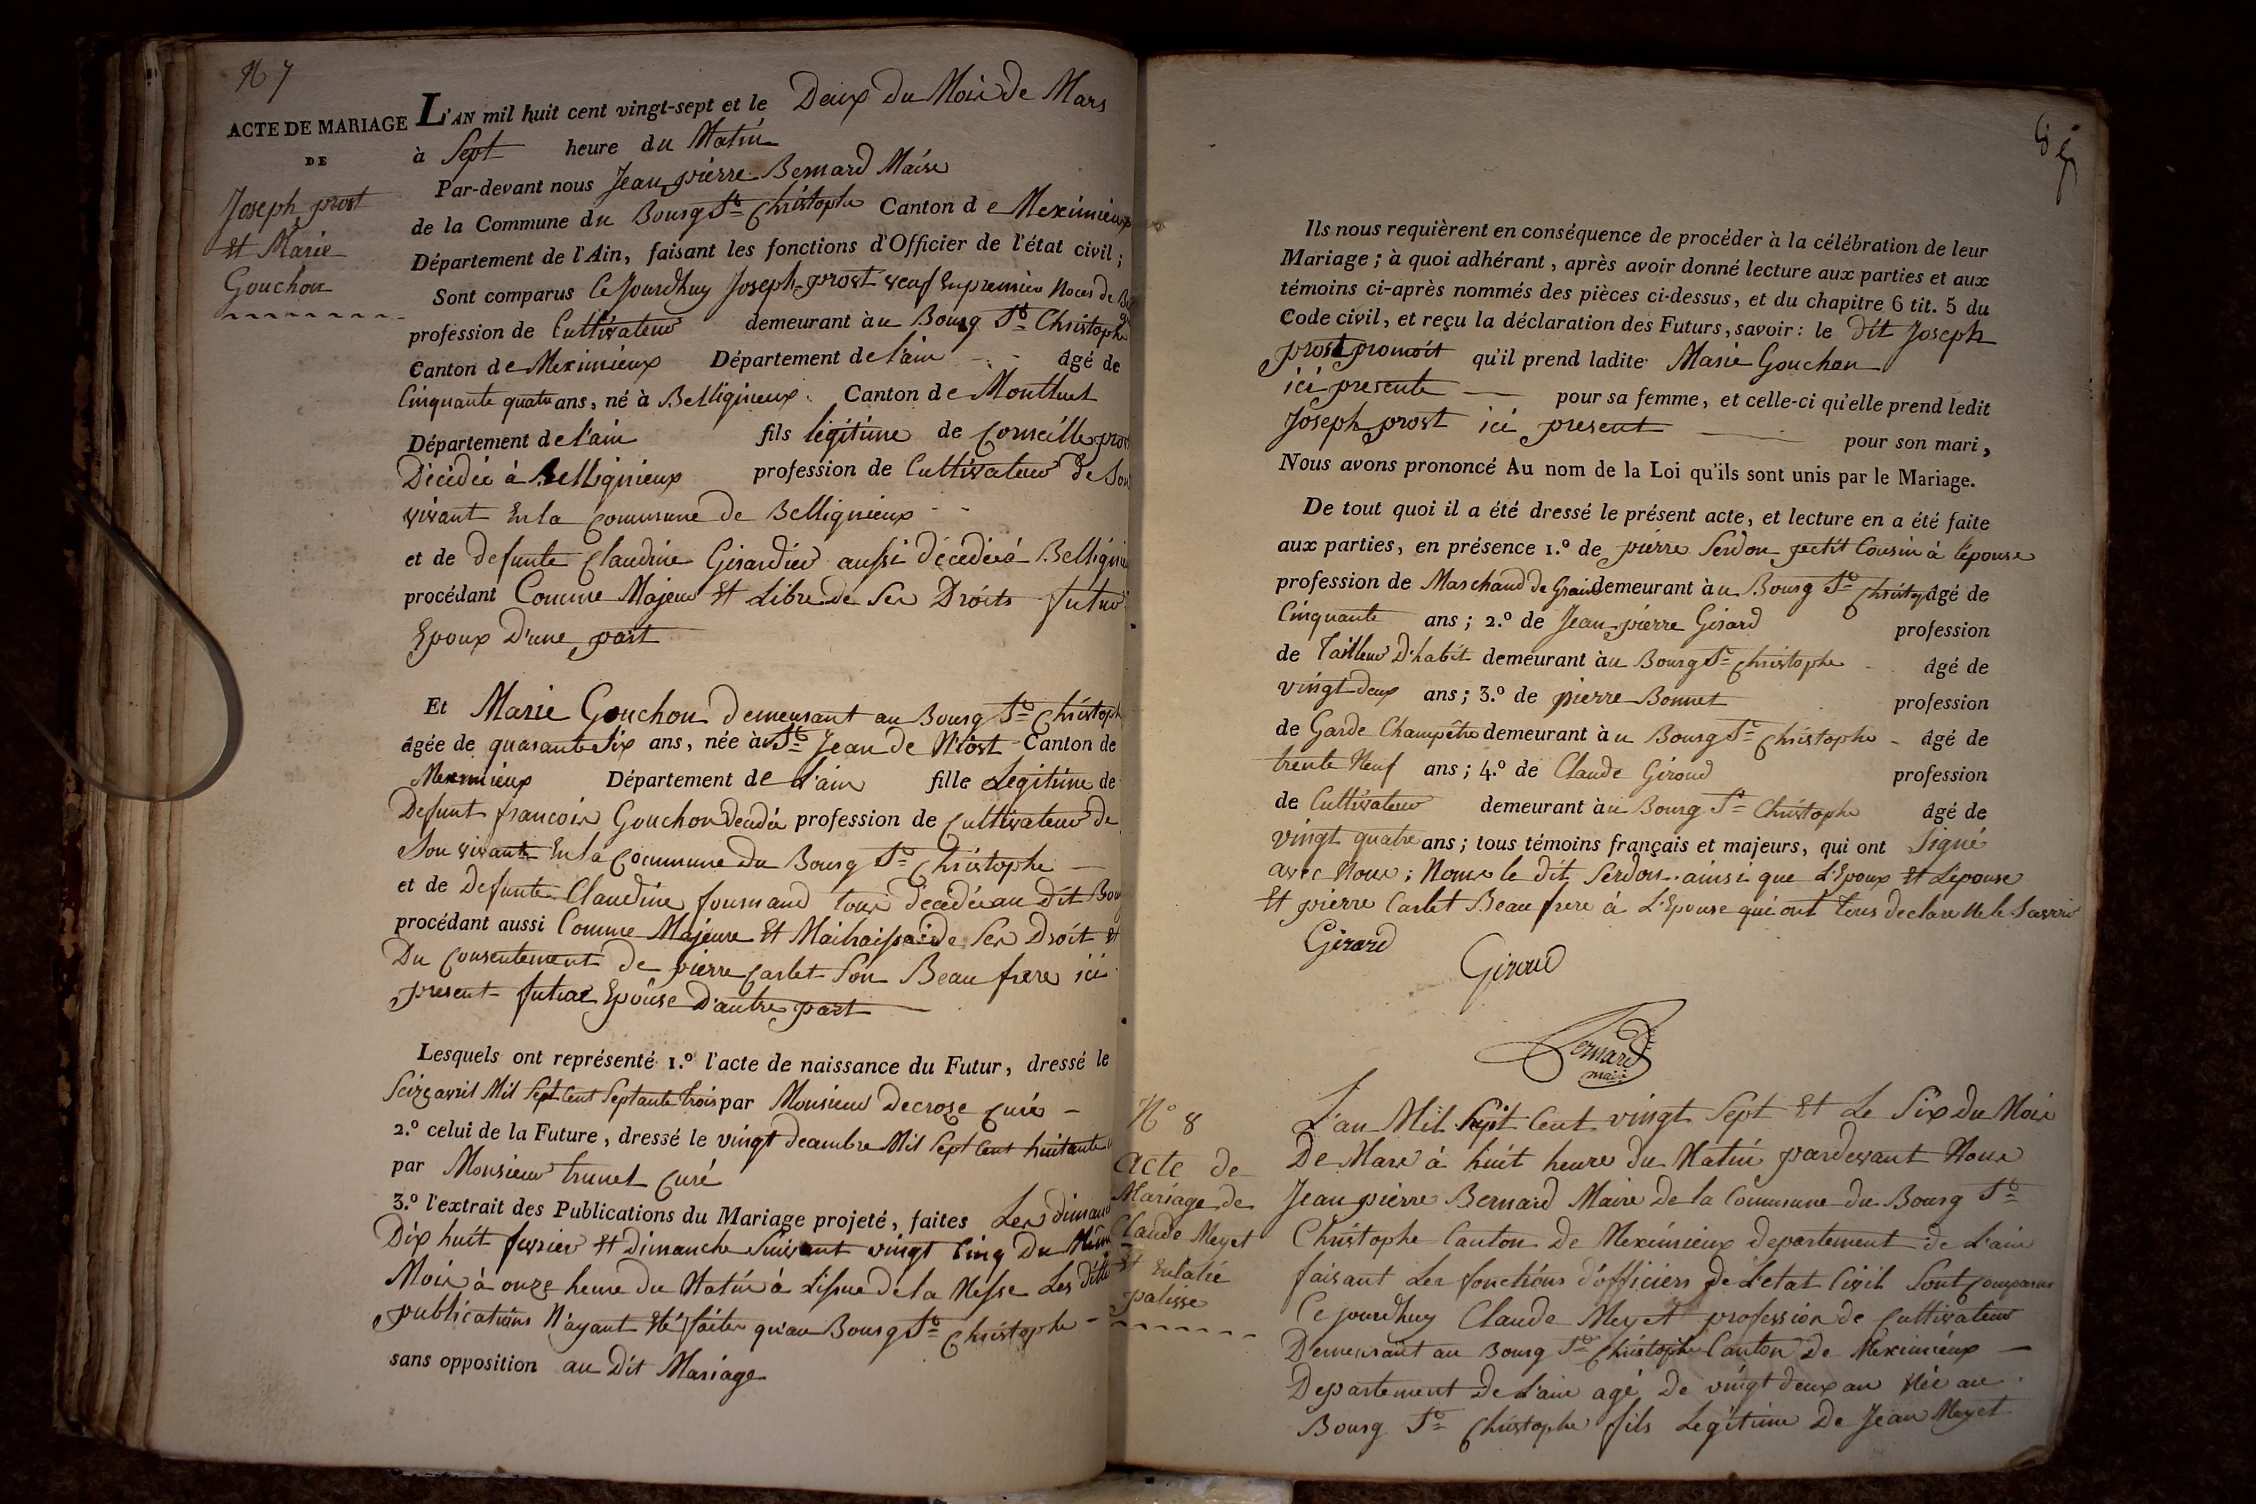 N 7
ACTE DE MARIAGE
DE
Joseph prost
Et Marie
Gouchon
L'AN mil huit cent vingt-sept et le Deux du Mois de Mars
à Sept heure du Matin
Par-devant nous Jean pierre Bernard Maire
de la Commune du Bourg St Christophe Canton de Meximieux
Département de l'Ain, faisant les fonctions d'Officier de l'état civil ;
Sont comparus Ce Jourdhuy Joseph prost veuf En premier Noces de
profession de Cultivateur demeurant àu Bourg St Christophe
Canton de Meximieux Département de l'ain âgé de
Cinquante quatre ans, né à Belligneux Canton de Montluel
Département de l'ain fils légitime de Conseille prost
Décédée à Belligneux profession de Cultivateur de Son
vivant En la Commune de Belligneux
et de defunte Claudine Girardier aussi décédée à Belligneux
procédant Comme Majeur Et Libre de Ses Droits futur
Epoux D'une part
Et Marie Gouchon demeurant au Bourg St Christophe
âgée de quarante Six ans, née à St Jean de Niost Canton de
Meximieux Département de L'ain fille Legitime de
Defunt francois Gouchon décédé profession de Cultivateur de
Son vivant En la Commune du Bourg St Christophe
et de Defunte Claudine fournand tous décédé au dit Bourg
procédant aussi Comme Majeure Et Maitraisse de Ses Droit Et
Du Consentement de pierre Carlet Son Beau frere ici
present future Epouse D'autre part
Lesquels ont représenté 1.º l'acte de naissance du Futur, dressé le
Seize avril Mil Sept Cent Septante trois par Monsieur Decroze Curé
2.º celui de la Future, dressé le vingt decembre Mil Sept Cent huitante
par Monsieur trunel Curé
3.º l'extrait des Publications du Mariage projeté, faites Les dimanche
Dix huit fevrier Et Dimanche Suivant vingt Cinq Du Même
Mois à onze heure du Matin à L'issue de la Messe Les dittes
publications N'ayant Eté faites qu'au Bourg St Christophe
sans opposition au Dit Mariage
Ils nous requièrent en conséquence de procéder à la célébration de leur
Mariage ; à quoi adhérant, après avoir donné lecture aux parties et aux
témoins ci-après nommés des pièces ci-dessus, et du chapitre 6 tit. 5 du
Code civil, et reçu la déclaration des Futurs, savoir : le dit Joseph
prost promoit qu'il prend ladite Marie Gouchon
ici presente pour sa femme, et celle-ci qu'elle prend ledit
Joseph prost ici present pour son mari,
Nous avons prononcé Au nom de la Loi qu'ils sont unis par le Mariage.
De tout quoi il a été dressé le présent acte, et lecture en a été faite
aux parties, en présence 1.º de pierre Serdon petit Cousin à L'épouse
profession de Marchand de Grain demeurant àu Bourg St Christophe âgé de
Cinquante ans ; 2.º de Jean pierre Girard profession
de Tailleur D'habit demeurant àu Bourg St Christophe âgé de
vingt deux ans ; 3.º de pierre Bonnet profession
de Garde Champêtre demeurant àu Bourg St Christophe âgé de
trente Neuf ans ; 4.º de Claude Giroud profession
de Cultivateur demeurant àu Bourg St Christophe âgé de
vingt quatre ans ; tous témoins français et majeurs, qui ont Signé
avec Nous ; Nome le dit Serdon ainsi que L'Epoux Et L'epouse
Et pierre Carlet Beau frere à L'Epouse qui ont tous declare Ne le Savoir
Girard
Giroud
Bernard
maire
N° 8
acte de
Mariage de
Claude Meyet
Et Eulalie
palisse
L'an Mil huit Cent vingt Sept Et Le Six du Mois
De Mars à huit heure du Matin pardevant Nous
Jean pierre Bernard Maire de la Commune du Bourg St
Christophe Canton De Meximieux departement de L'ain
faisant Les fonctions d'officiers de L'etat Civil Sont Comparus
Ce jourdhuy Claude Meyet profession de Cultivateur
Demeurant au Bourg St Christophe Canton De Meximieux
Departement de L'ain agé De vingt deux an Née au
Bourg St Christophe fils Legitime De Jean Meyet